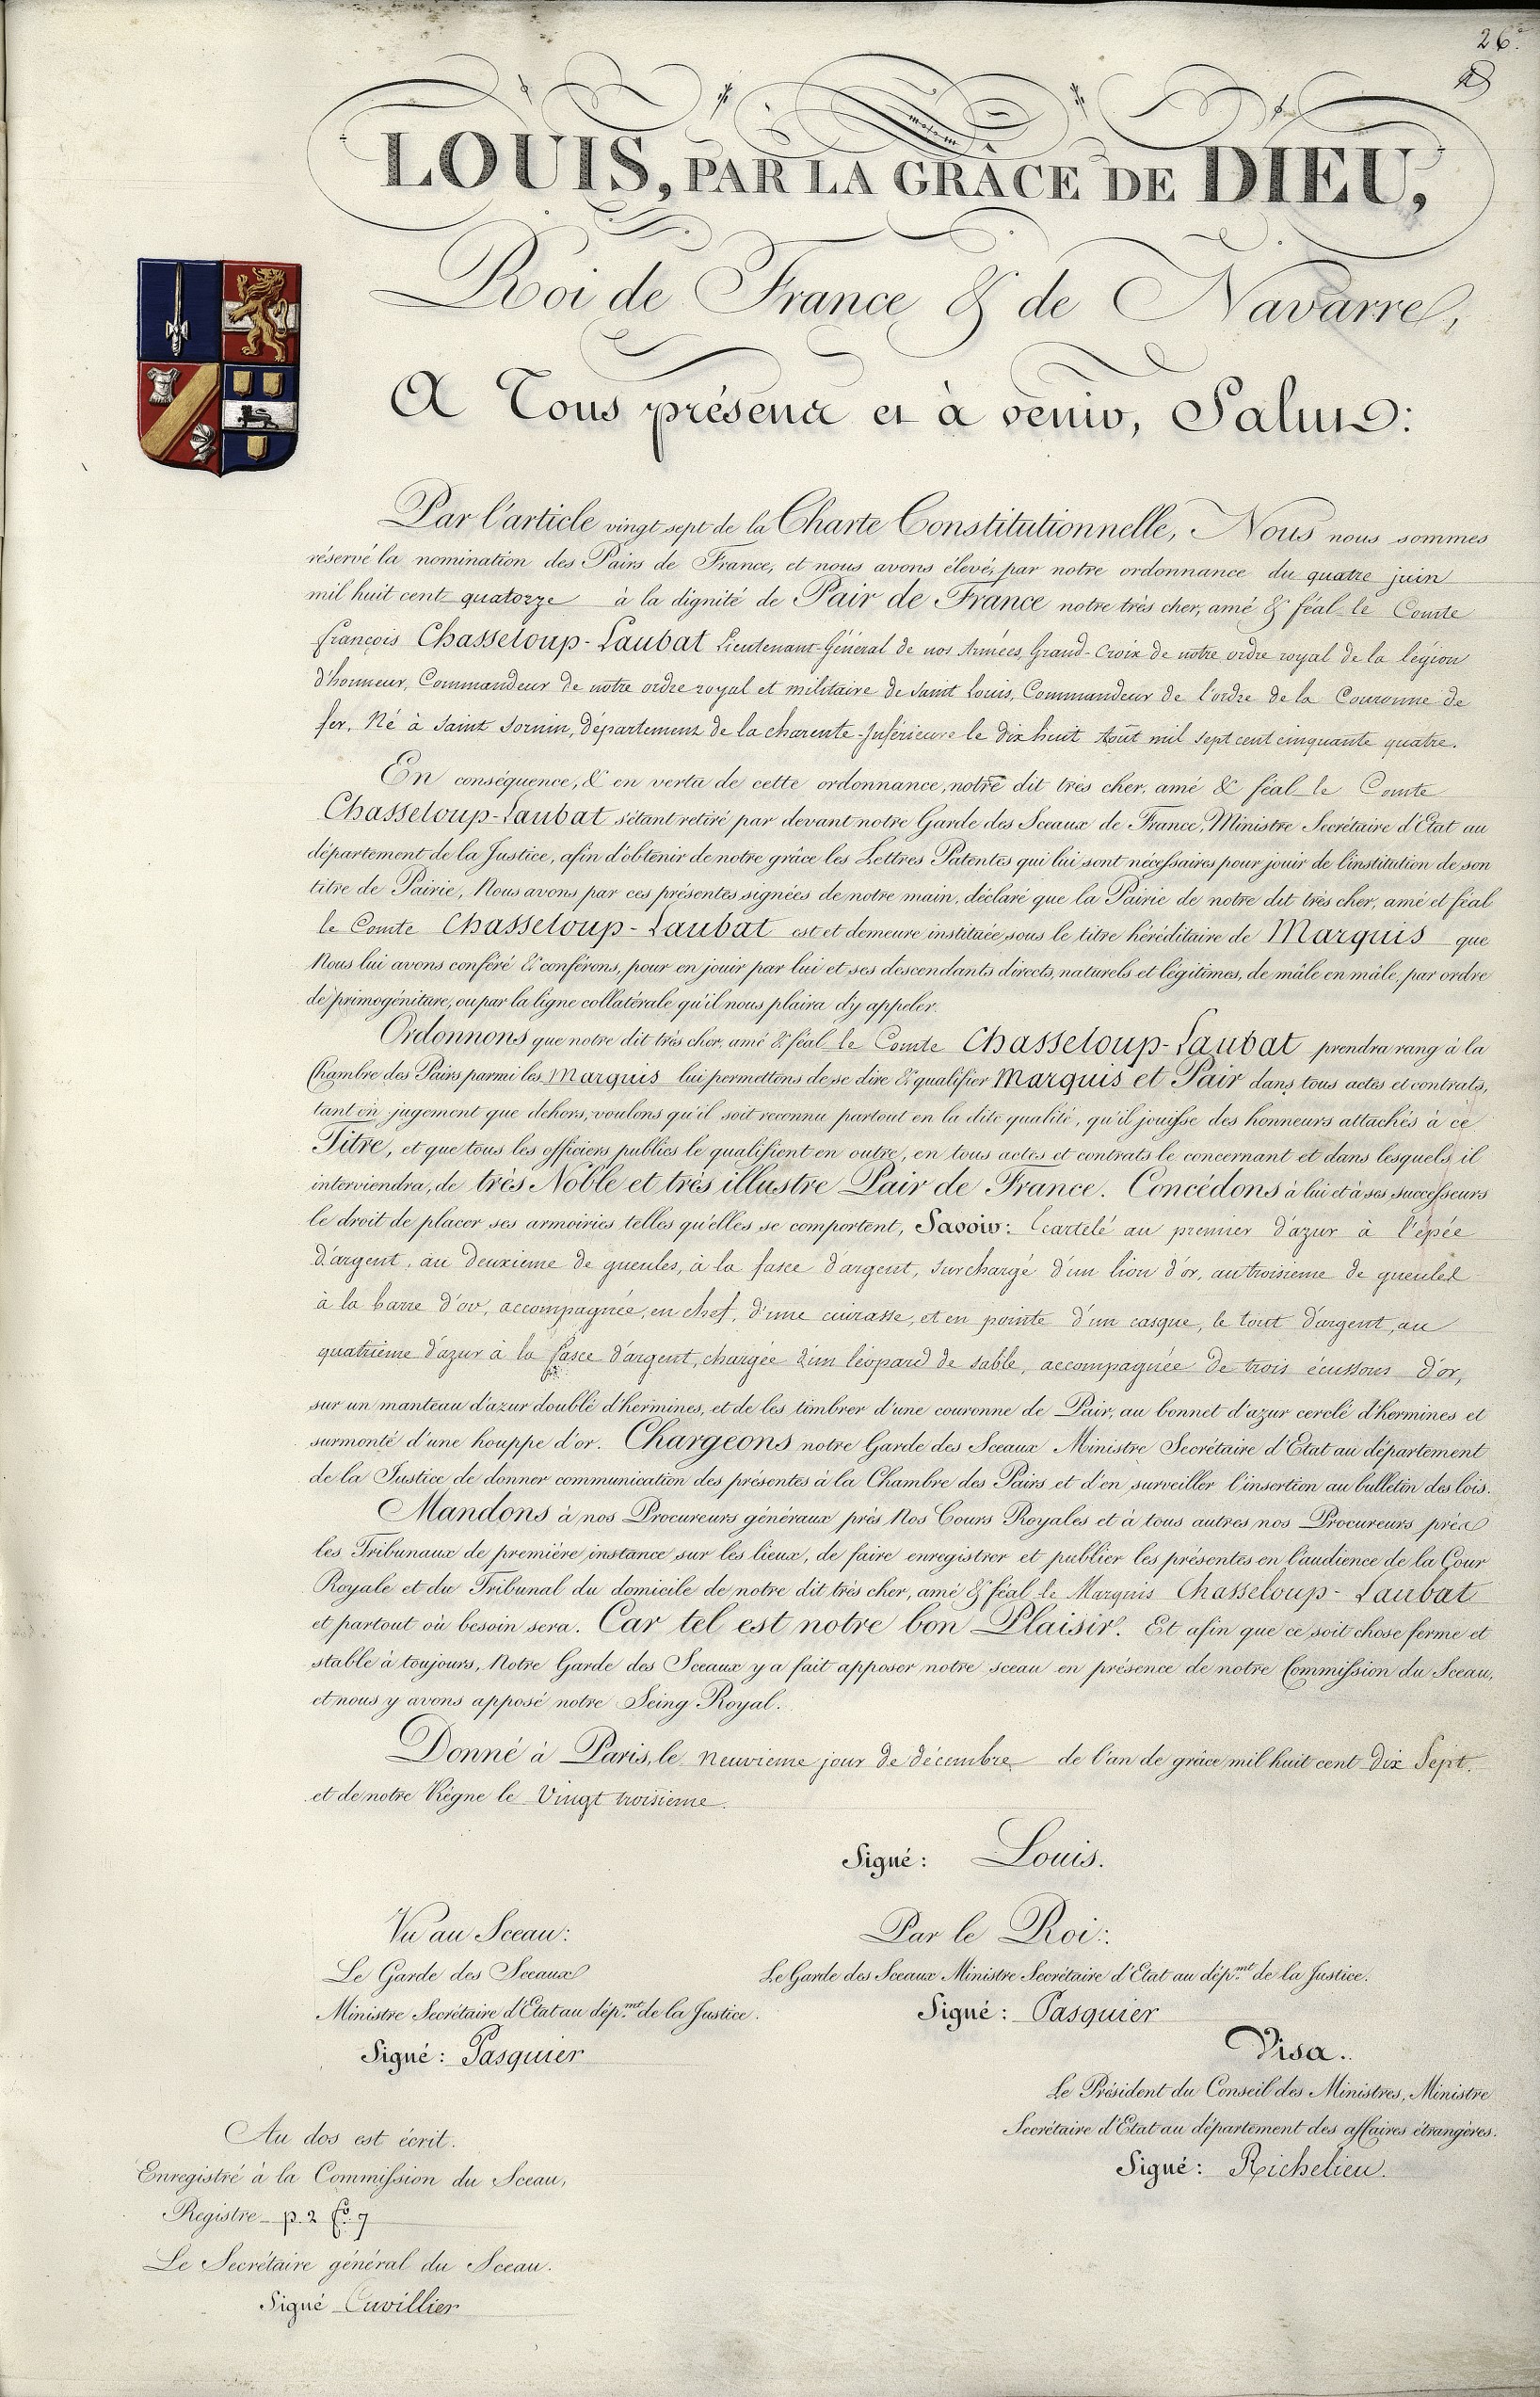 26.
LOUIS, PAR LA GRÂCE DE DIEU,
Roi de France & de Navarre,
A Tous présens et à venir, Salut:
Par l'article vingt sept de la Charte Constitutionnelle, Nous nous sommes
réservé la nomination des Pairs de France, et nous avons élevé, par notre ordonnance du quatre juin
mil huit cent quatorze à la dignité de Pair de France notre très cher, amé & féal le Comte
françois Chasseloup-Laubat Lieutenant-Général de nos Armées, Grand-Croix de notre ordre royal de la légion
d'honneur, Commandeur de notre ordre royal et militaire de Saint Louis, Commandeur de l'ordre de la Couronne de
fer, Né à Saint Sornin, département de la charente-Inférieure le dix huit Août mil sept cent cinquante quatre.
En conséquence, & en vertu de cette ordonnance, notre dit très cher, amé & féal le Comte
Chasseloup-Laubat s'étant retiré par devant notre Garde des Sceaux de France, Ministre Secrétaire d'Etat au
département de la Justice, afin d'obtenir de notre grâce les Lettres Patentes qui lui sont nécessaires pour jouir de l'institution de son
titre de Pairie, Nous avons par ces présentes signées de notre main, déclaré que la Pairie de notre dit très cher, amé et féal
le Comte Chasseloup-Laubat est et demeure instituée sous le titre héréditaire de Marquis que
Nous lui avons conféré & conférons, pour en jouir par lui et ses descendants directs, naturels et légitimes, de mâle en mâle, par ordre
de primogéniture, ou par la ligne collatérale qu'il nous plaira d'y appeler.
Ordonnons que notre dit très cher, amé & féal le Comte Chasseloup-Laubat prendra rang à la
Chambre des Pairs parmi les Marquis lui permettons de se dire & qualifier Marquis et Pair dans tous actes et contrats,
tant en jugement que dehors, voulons qu'il soit reconnu partout en la dite qualité, qu'il jouisse des honneurs attachés à ce
Titre, et que tous les officiers publics le qualifient en outre, en tous actes et contrats le concernant et dans lesquels il
interviendra, de très Noble et très illustre Pair de France. Concédons à lui et à ses successeurs
le droit de placer ses armoiries telles qu'elles se comportent, Savoir: Ecartelé au premier d'azur à l'épée
d'argent, au deuxieme de gueules, à la fasce d'argent, surchargé d'un lion d'or, au troisieme de gueules
à la barre d'or, accompagnée, en chef, d'une cuirasse, et en pointe d'un casque, le tout d'argent, au
quatrieme d'azur à la fasce d'argent, chargée d'un léopard de sable, accompagnée de trois écussons d'or,
sur un manteau d'azur doublé d'hermines, et de les timbrer d'une couronne de Pair, au bonnet d'azur cerclé d'hermines et
surmonté d'une houppe d'or. Chargeons notre Garde des Sceaux Ministre Secrétaire d'Etat au département
de la Justice de donner communication des présentes à la Chambre des Pairs et d'en surveiller l'insertion au bulletin des lois.
Mandons à nos Procureurs généraux près Nos Cours Royales et à tous autres nos Procureurs près
les Tribunaux de première instance sur les lieux, de faire enregistrer et publier les présentes en l'audience de la Cour
Royale et du Tribunal du domicile de notre dit très cher, amé & féal le Marquis Chasseloup-Laubat
et partout où besoin sera. Car tel est notre bon Plaisir. Et afin que ce soit chose ferme et
stable à toujours, Notre Garde des Sceaux y a fait apposer notre sceau en présence de notre Commission du Sceau,
et nous y avons apposé notre Seing Royal.
Donné à Paris, le neuvieme jour de décembre de l'an de grâce mil huit cent dix Sept.
et de notre Règne le Vingt troisieme.
Signé: Louis.
Vu au Sceau:
Le Garde des Sceaux
Ministre Secrétaire d'Etat au dép.mt de la Justice.
Signé: Pasquier
Par le Roi:
Le Garde des Sceaux Ministre Secrétaire d'Etat au dép.mt de la Justice.
Signé: Pasquier
Visa.
Le Président du Conseil des Ministres, Ministre
Secrétaire d'Etat au département des affaires étrangères.
Signé: Richelieu.
Au dos est écrit.
Enregistré à la Commission du Sceau,
Registre p. 2 fo. 7
Le Secrétaire général du Sceau.
Signé Cuvillier